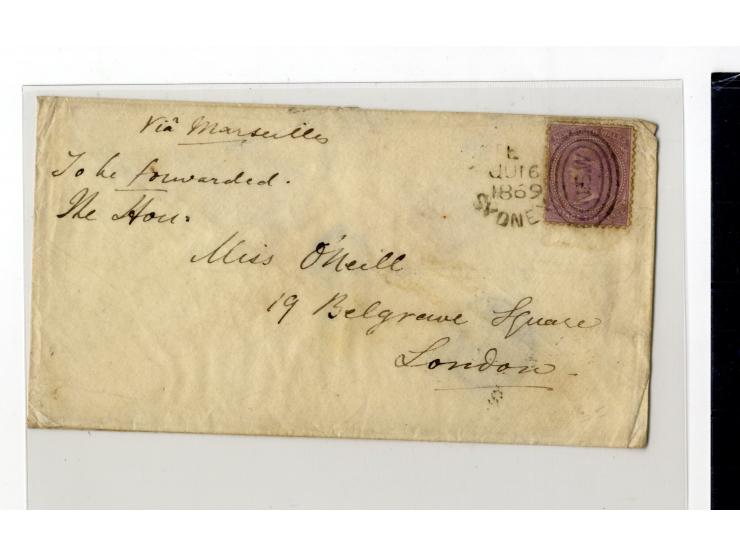 Via Marseilles
To be forwarded.
The Hon:
Miss O'Neill
19 Belgrave Square
London
JU 16
1869
SYDNEY
NSW